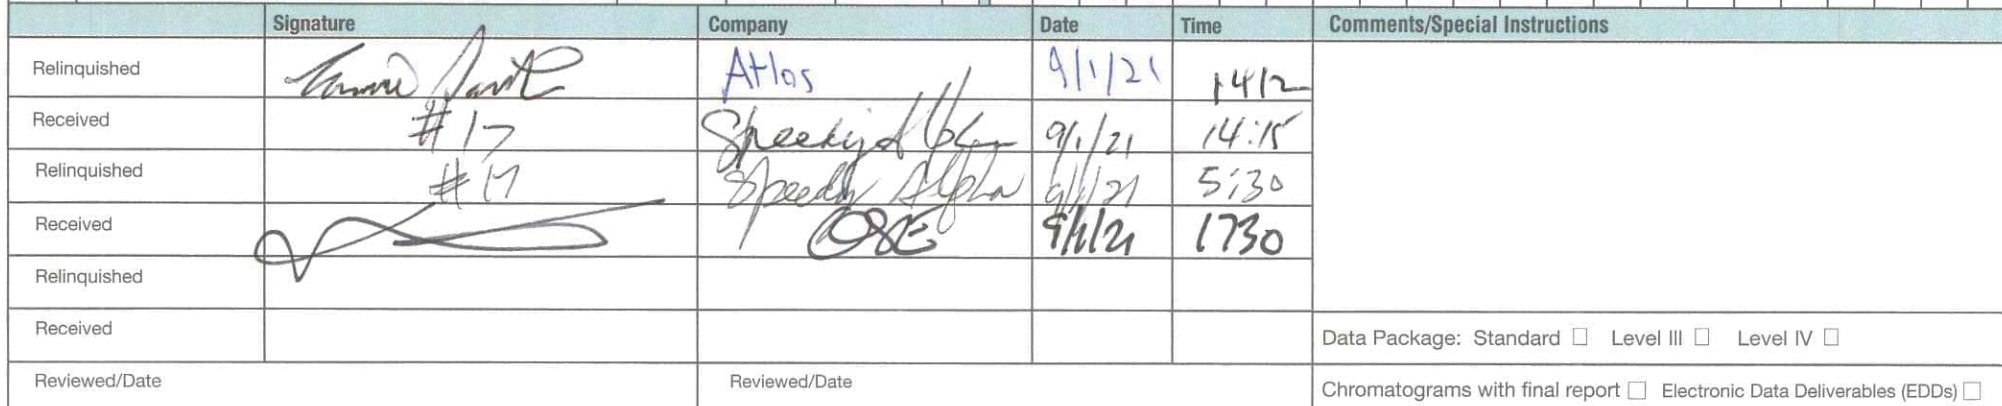 Signature Company Date Time Comments/Special Instructions
Relinquished Atlas 9/1/21 1412
Received #17 Speedy Alpha 9/1/21 14:15
Relinquished #17 Speedy Alpha 9/1/21 5:30
Received OSE 9/1/21 1730
Relinquished
Received
Data Package: Standard ☐ Level III ☐ Level IV ☐
Reviewed/Date Reviewed/Date
Chromatograms with final report ☐ Electronic Data Deliverables (EDDs) ☐